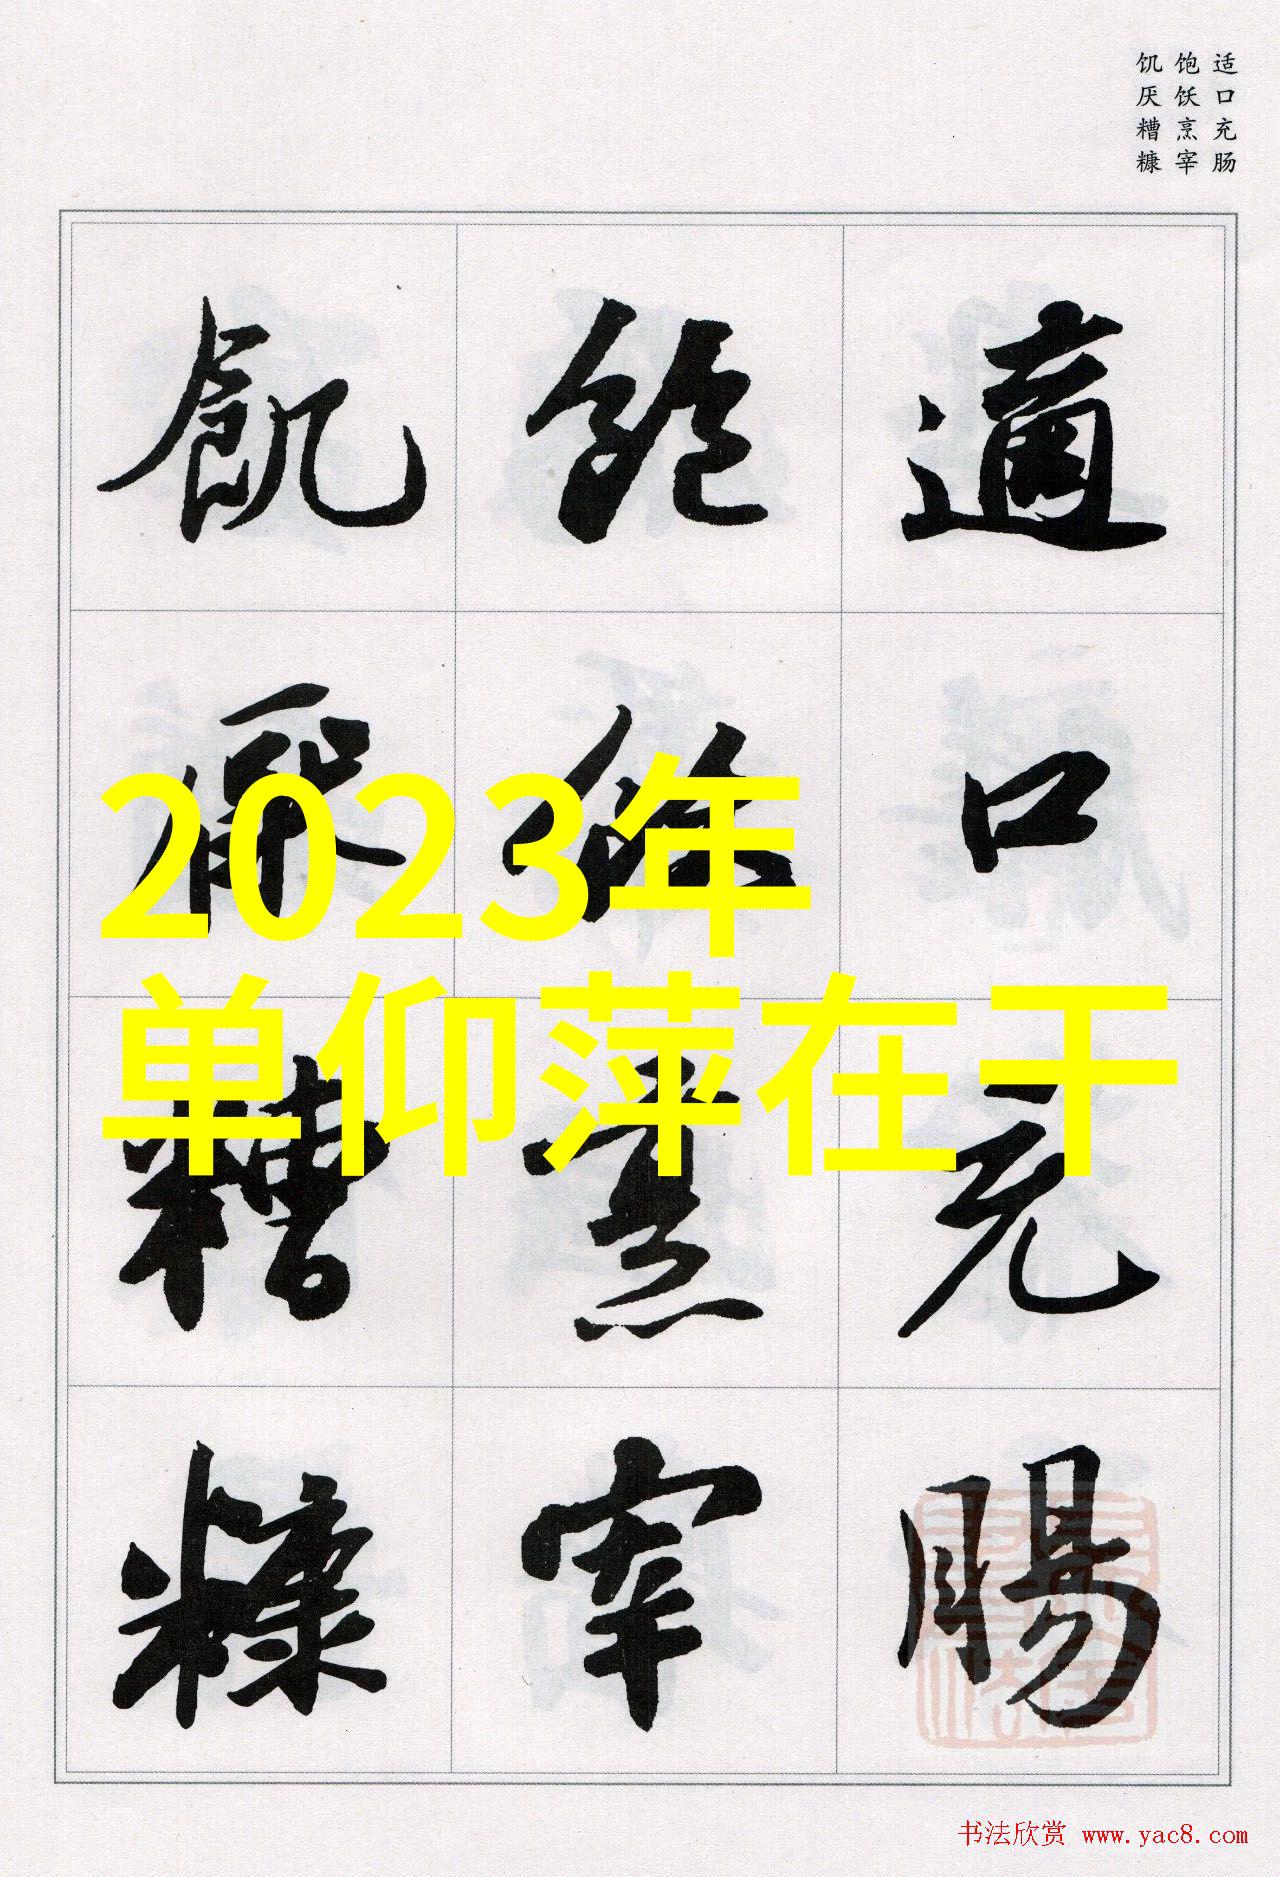 适口充肠
饱饫烹宰
饥厌糟糠
適口充腸
飽飫烹宰
飢厭糟糠
2023年
单仰萍在干
书法欣赏 www.yac8.com